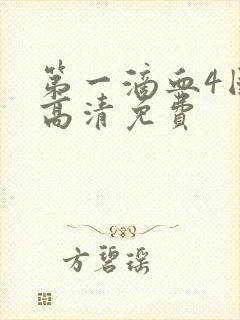 第一滴血4国
高清免费
方碧瑶